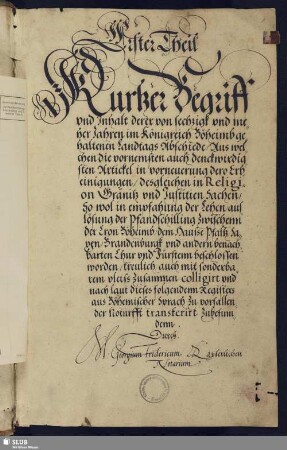 Erster Theil
Kurtzer Begriff
vnd Inhalt derer von sechzigk vnd me
her Jahren im Königreich Böheimb ge
haltenen Landtags Abschiede, Aus wel
chen die vornemsten auch denckwirdig
sten Artickel in vornewrung dero Erb
einigungen, desgleichen in Religi
on Granitz vnd Justitien Sachen,
So wol in empfahung der Lehen auf
lösung der Pfandschilling zwischenn
der Cron Böheimb dem Hauise Pfaltz Sa
xen, Brandenburgk vnd andern benach
barten Chur vnd Fürstenn beschlossen
worden, treulich auch mit sonderba
rem vleiss Zusammen colligirt vnd
nach laut dieses folgendem Registers
aus Böhemischer Sprach zu vorfallen
der Notturfft transferirt Zubefin
denn.
Durch
Georgium Fridericum
Notarium.
SLUB